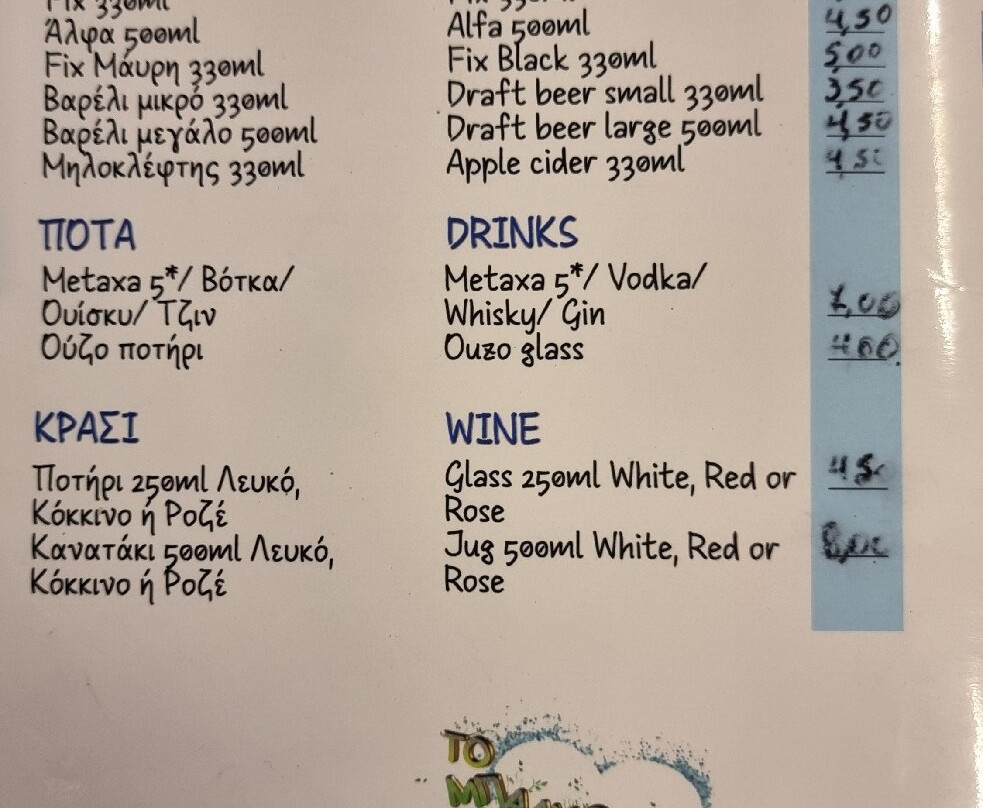 Fix 330ml Fix 330ml
Άλφα 500ml Alfa 500ml 4,50
Fix Μάυρη 330ml Fix Black 330ml 5,00
Βαρέλι μικρό 330ml Draft beer small 330ml 3,50
Βαρέλι μεγάλο 500ml Draft beer large 500ml 4,50
Μηλοκλέφτης 330ml Apple cider 330ml
ΠΟΤΑ DRINKS
Metaxa 5*/ Βότκα/ Metaxa 5*/ Vodka/
Ουίσκυ/ Τζιν Whisky/ Gin 7,00
Ούζο ποτήρι Ouzo glass 4 00
ΚΡΑΣΙ WINE
Ποτήρι 250ml Λευκό, Glass 250ml White, Red or
Κόκκινο ή Ροζέ Rose
Κανατάκι 500ml Λευκό, Jug 500ml White, Red or
Κόκκινο ή Ροζέ Rose
ΤΟ